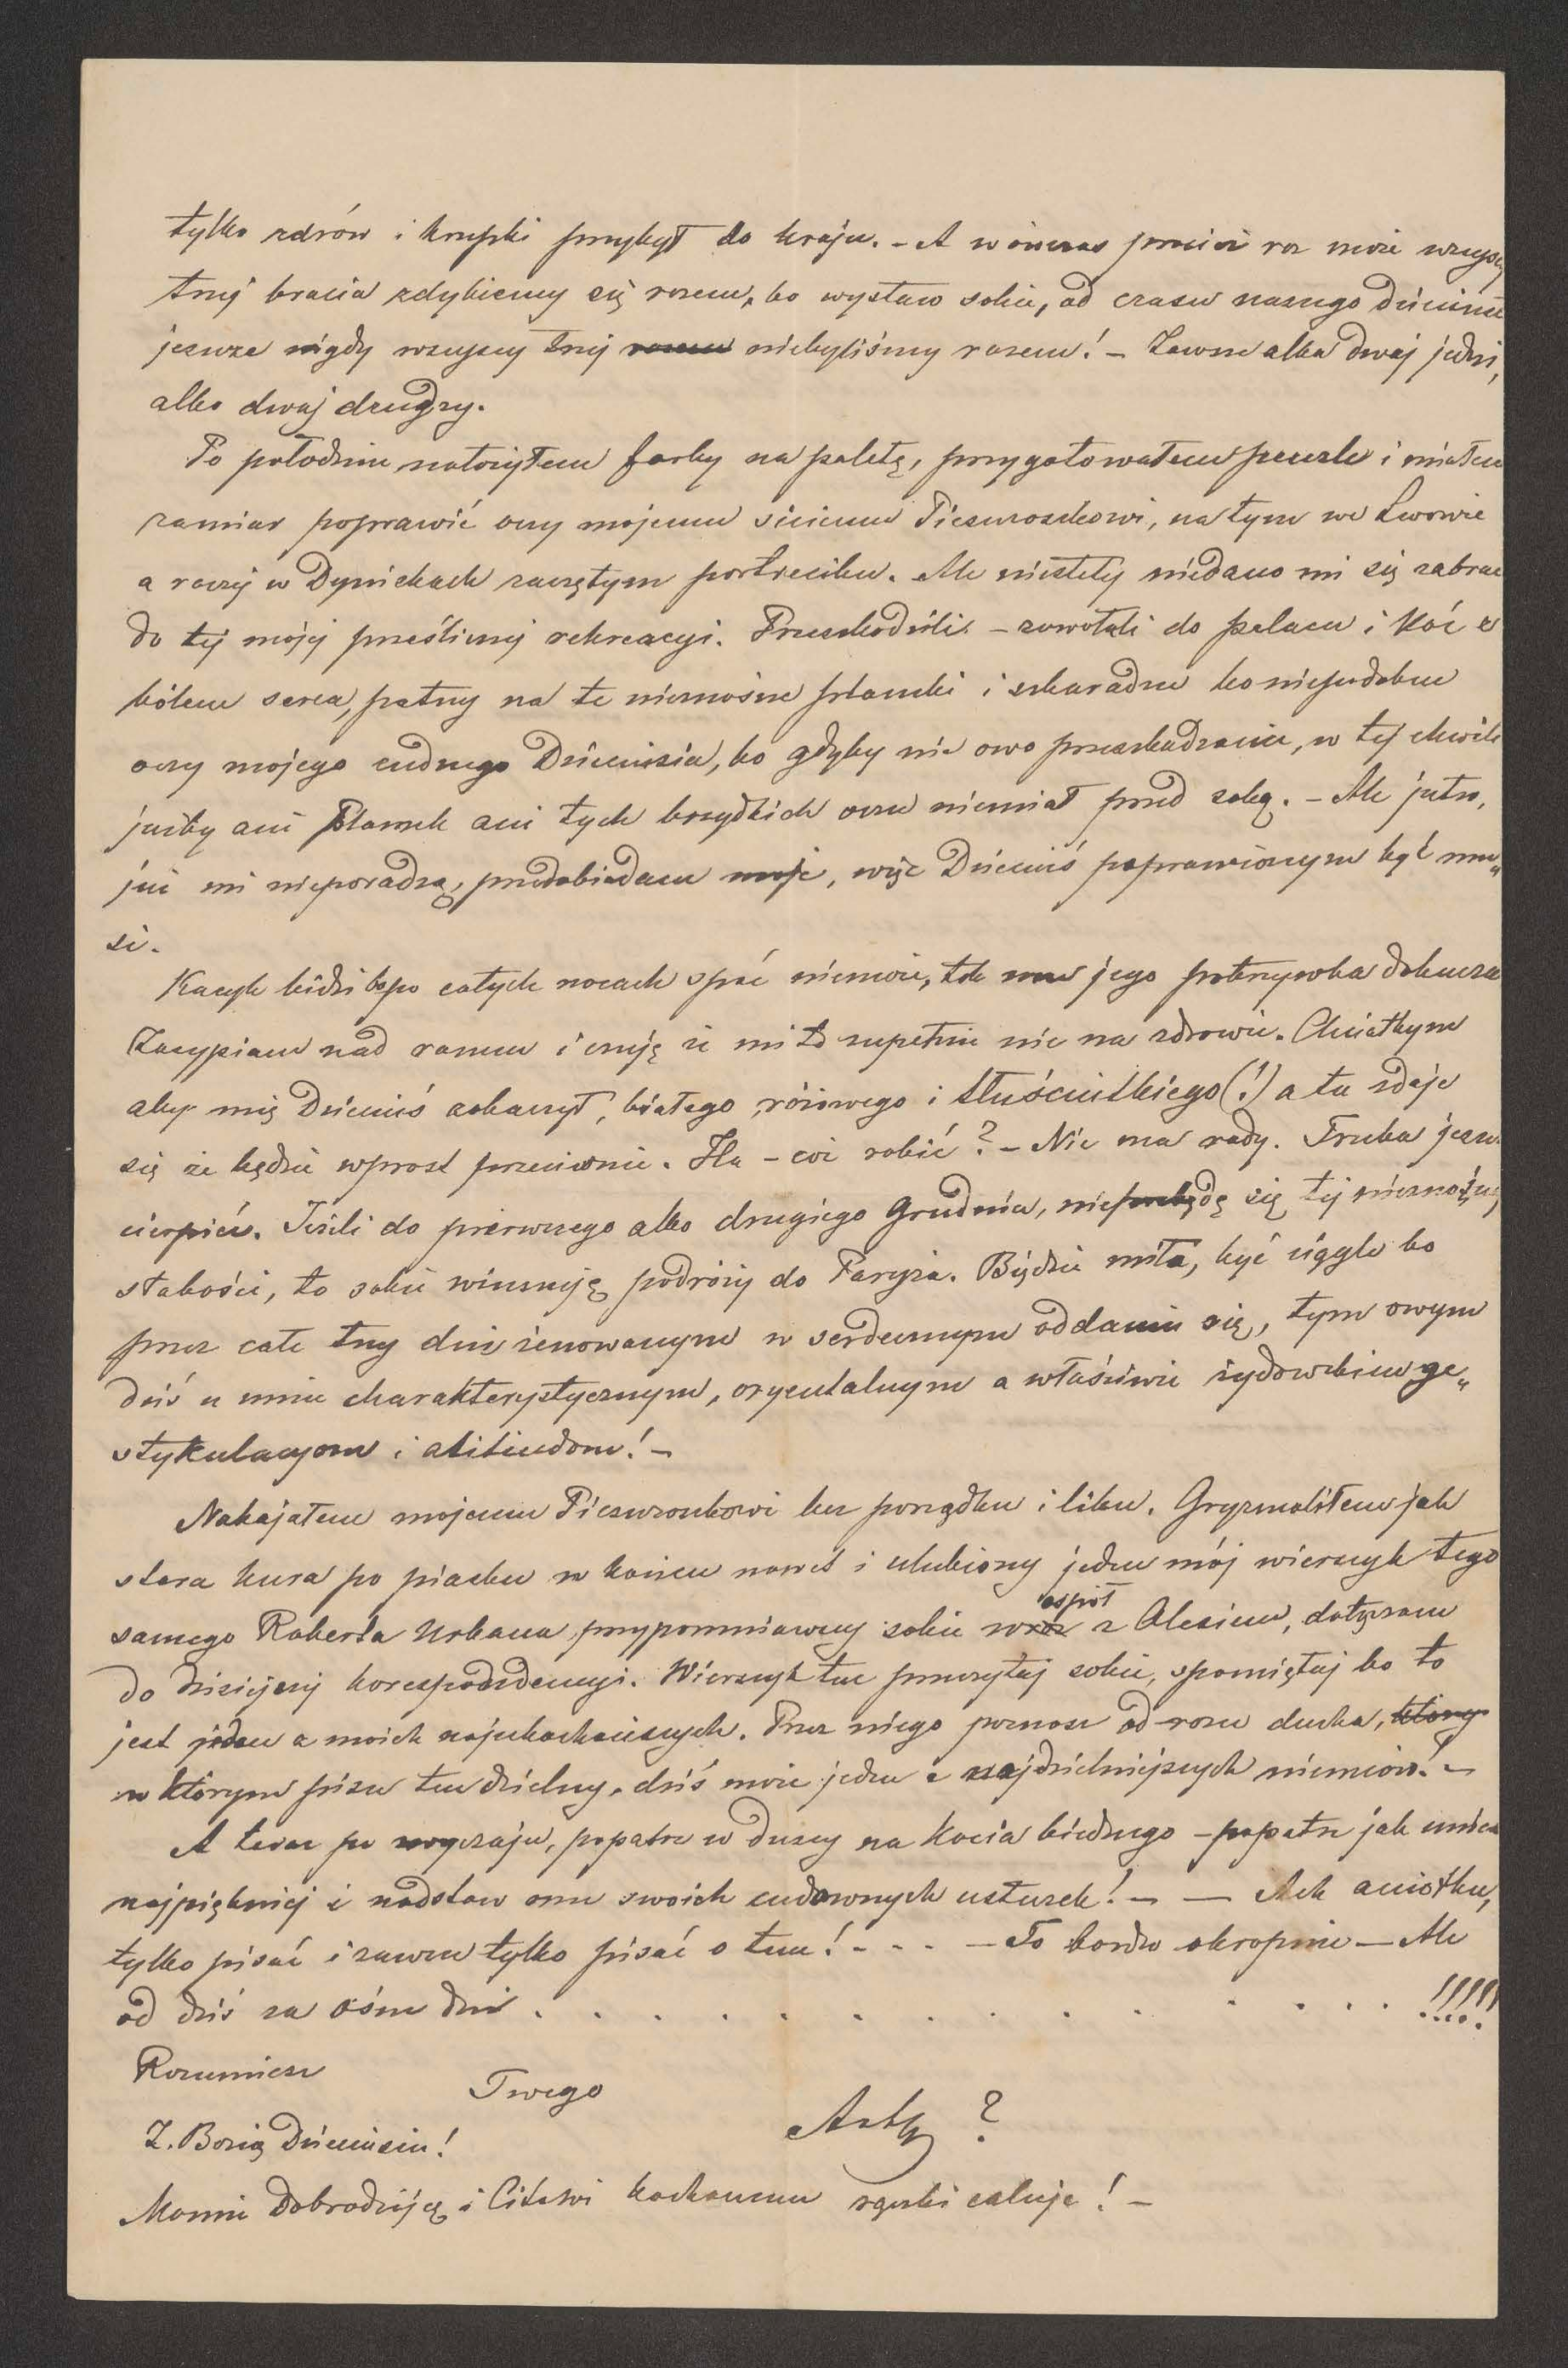 tylko zdrów i krzepki przybył do kraju. – A wówczas przecież raz może wszyscy
trzej bracia zdybiemy się razem, bo wystaw sobie, od czasu naszego
jeszcze nigdy wszyscy trzej razem niebyliśmy razem! – Zawsze albo dwaj jedni,
albo dwaj drudzy.
Po południu nałożyłem farby na paletę, przygotowałem penzle i miałem
zamiar poprawić oczy mojemu Pieszczoszkowi, na tym we Lwowie
a raczej w Dyniskach zaczętym portreciku. Ale niestety niedano mi się zabrać
do tej mojej prześlicznej rekreacyi. Przeszkodzili – zawołali do pałacu i Kóć z
bólem serca, patrzy na te nieznośne plamki i szkaradne bo niepodobne
oczy mojego cudnego Dzieciusia, bo gdyby nie owo przeszkadzanie, w tej chwili
jużby ani plamek ani tych brzydkich oczu niemiał przed sobą. – Ale jutro,
już mi nieporadzą, przedobiadem moje, więc Dzieciuś poprawionym być mu„
si.
Kacyk bidzi bo po całych nocach spać niemoże, tak mu jego pokrzywka dokucza
Zasypiam nad ranem i czuję że mi to zupełnie nie na zdrowie. Chciałbym
aby mię Dzieciuś zobaczył, białego, różowego i tłuściutkiego (!) a tu zdaje
się że będzie wprost przeciwnie. Ha – cóż robić? – Nie ma rady. Trzeba jeszcze
cierpieć. Jeżeli do pierwszego albo drugiego Grudnia, niepozbędę się tej nieznośnej
słabości, to sobie winszuję podróży do Paryża. Będzie miło, być ciągle bo
przez całe trzy dni żenowanym w serdecznym oddaniu się, tym owym
dziś u mnie charakterystycznym, oryentalnym a właściwie żydowskim ge„
stykulacyom i atitiudom! –
Nabajałem mojemu Pieszczoszkowi bez porządku i liku. Gryzmoliłem jak
stara kura po piasku w końcu nawet i ulubiony jeden mój wierszyk tego
samego Roberta Urbana, przypomniawszy sobie wraz wespół z Olesiem, dołączam
do dzisiejszej korespondencyi. Wierszyk ten przeczytaj sobie, spamiętaj bo to
jest jeden z moich najukochańszych. Przez niego poznasz od razu ducha, który
w którym pisze ten dzielny, dziś może jeden z najdzielniejszych niemców. –
A teraz po zwyczaju, popatrz w duszy na Kocia biednego – popatrz jak umiesz
najpiękniej i nadstaw mu swoich cudownych usteczek! – – Ach aniołku,
tylko pisać i zawsze tylko pisać o tem! - - - – To bardzo okropnie – Ale
od dziś za ośm dni . . . . . . . . . . . . . . !!!!!
Rozumiesz
Twego
Z. Bozią Dzieciusiu!
?
Mamie Dobrodziejce i Citasi kochanemu rączki całuję! –